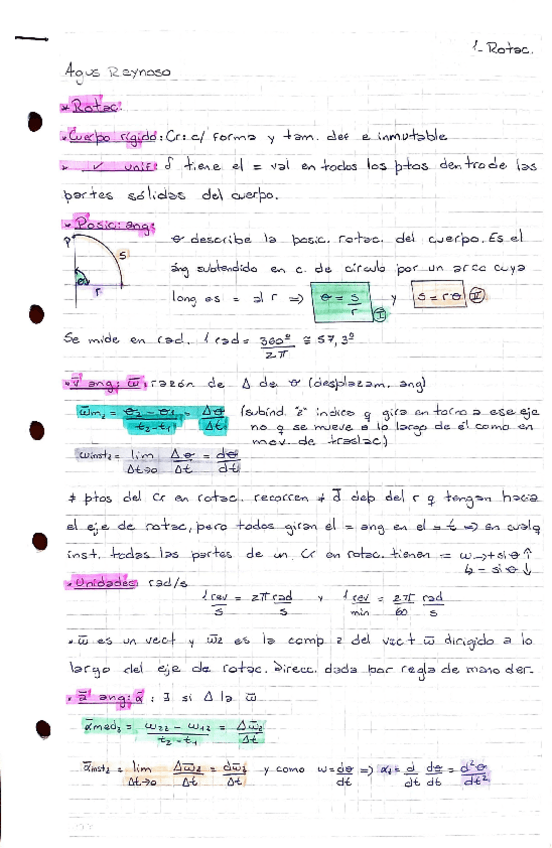 1-Rotac.
Agus Reynoso
* Rotac.
• Cuerpo rígido: Cr: c/ forma y tam. def e inmutable
• ✓ unif: δ tiene el = val en todos los ptos dentro de las
partes sólidas del cuerpo.
• Posic: ang:
P
s
θ
r
θ describe la posic. rotac. del cuerpo. Es el
áng subtendido en c. de círculo por un arco cuya
long es = al r ⇒ θ = s/r (I) y s = rθ (II)
Se mide en rad. 1 rad = 360º/2π ≅ 57,3º
• v̄ ang: w̄: razón de Δ de θ (desplazam. ang)
w̄m₂ = (θ₂ - θ₁)/(t₂ - t₁) = Δθ/Δt (subínd. "z" indica q gira en torno a ese eje
no q se mueve a lo largo de él como en
mov. de traslac)
winst₂ = lim Δt→0 Δθ/Δt = dθ/dt
≠ ptos del Cr en rotac. recorren ≠ d̄ dep del r q tengan hacia
el eje de rotac, pero todos giran el = ang en el = t ⇒ en cualq
inst. todas las partes de un Cr en rotac. tienen = w → + si θ ↑
↳ - si θ ↓
• Unidades rad/s
1 rev/s = 2π rad/s y 1 rev/min = 2π/60 rad/s
• w̄ es un vect y w̄z es la comp z del vect w̄ dirigido a lo
largo del eje de rotac. Direcc. dada por regla de mano der.
• ā ang: ᾱ : ∃ si Δ la w̄
ᾱmed₂ = (w₂₂ - w₁₂)/(t₂ - t₁) = Δw̄₂/Δt
ᾱinst₂ = lim Δt→0 Δw̄₂/Δt = dw̄₂/dt y como w = dθ/dt ⇒ α₂ = d/dt dθ/dt = d²θ/dt²